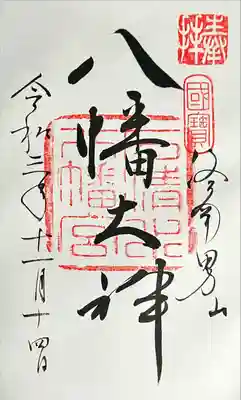 奉拝
國寶
男山
八幡大神
石清水
八幡宮
令和三年十一月十四日